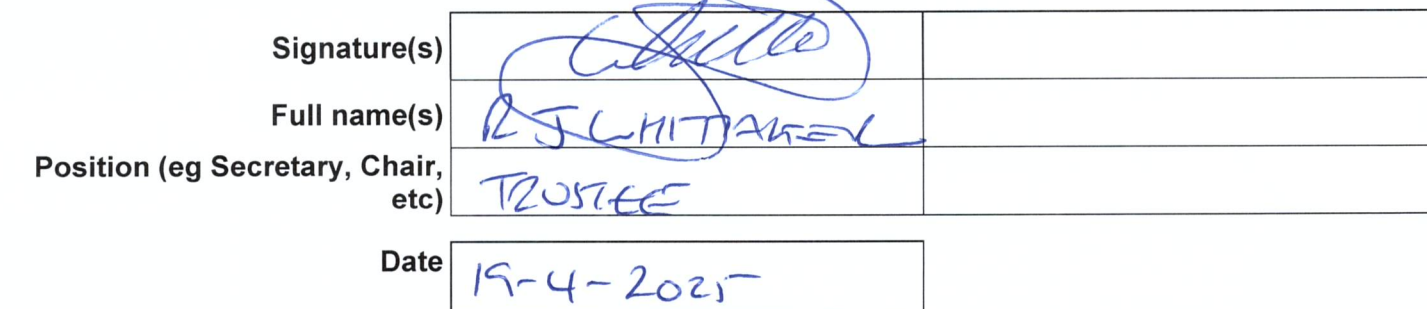 Signature(s)
Full name(s) R J WHITTAKER
Position (eg Secretary, Chair,
etc) TRUSTEE
Date 19-4-2025